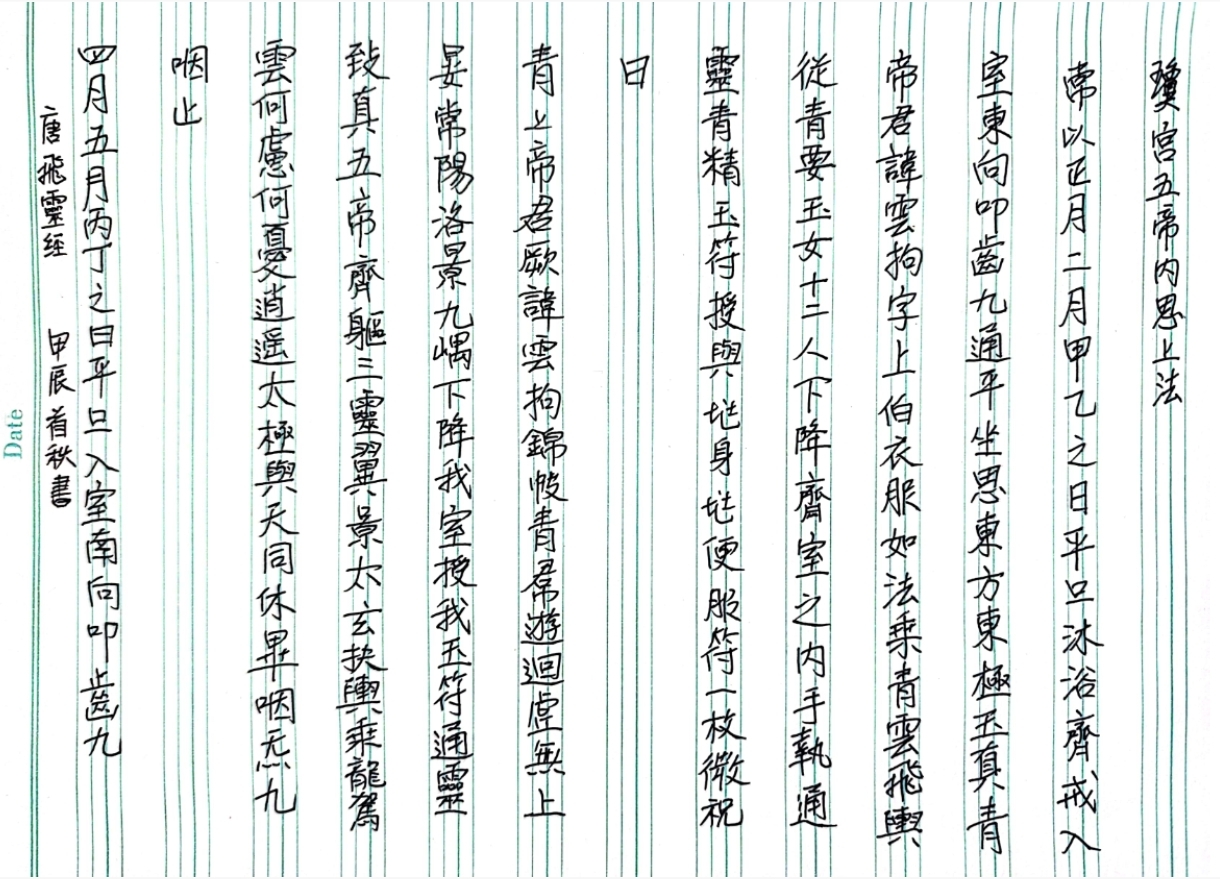 瓊宮五帝內思上法
常以正月二月甲乙之日平旦沐浴齊戒入
室東向叩齒九通平坐思東方東極玉真青
帝君諱雲拘字上伯衣服如法乘青雲飛輿
從青要玉女十二人下降齊室之內手執通
靈青精玉符授與兆身兆便服符一枚微祝
曰
青上帝君厥諱雲拘錦帔青帬遊迴虛無上
晏常陽洛景九嵎下降我室授我玉符通靈
致真五帝齊軀三靈翼景太玄抉輿乘龍駕
雲何慮何憂逍遥太極與天同休畢咽炁九
咽止
四月五月丙丁之日平旦入室南向叩齒九
唐飛靈经 甲辰首秋書
Date